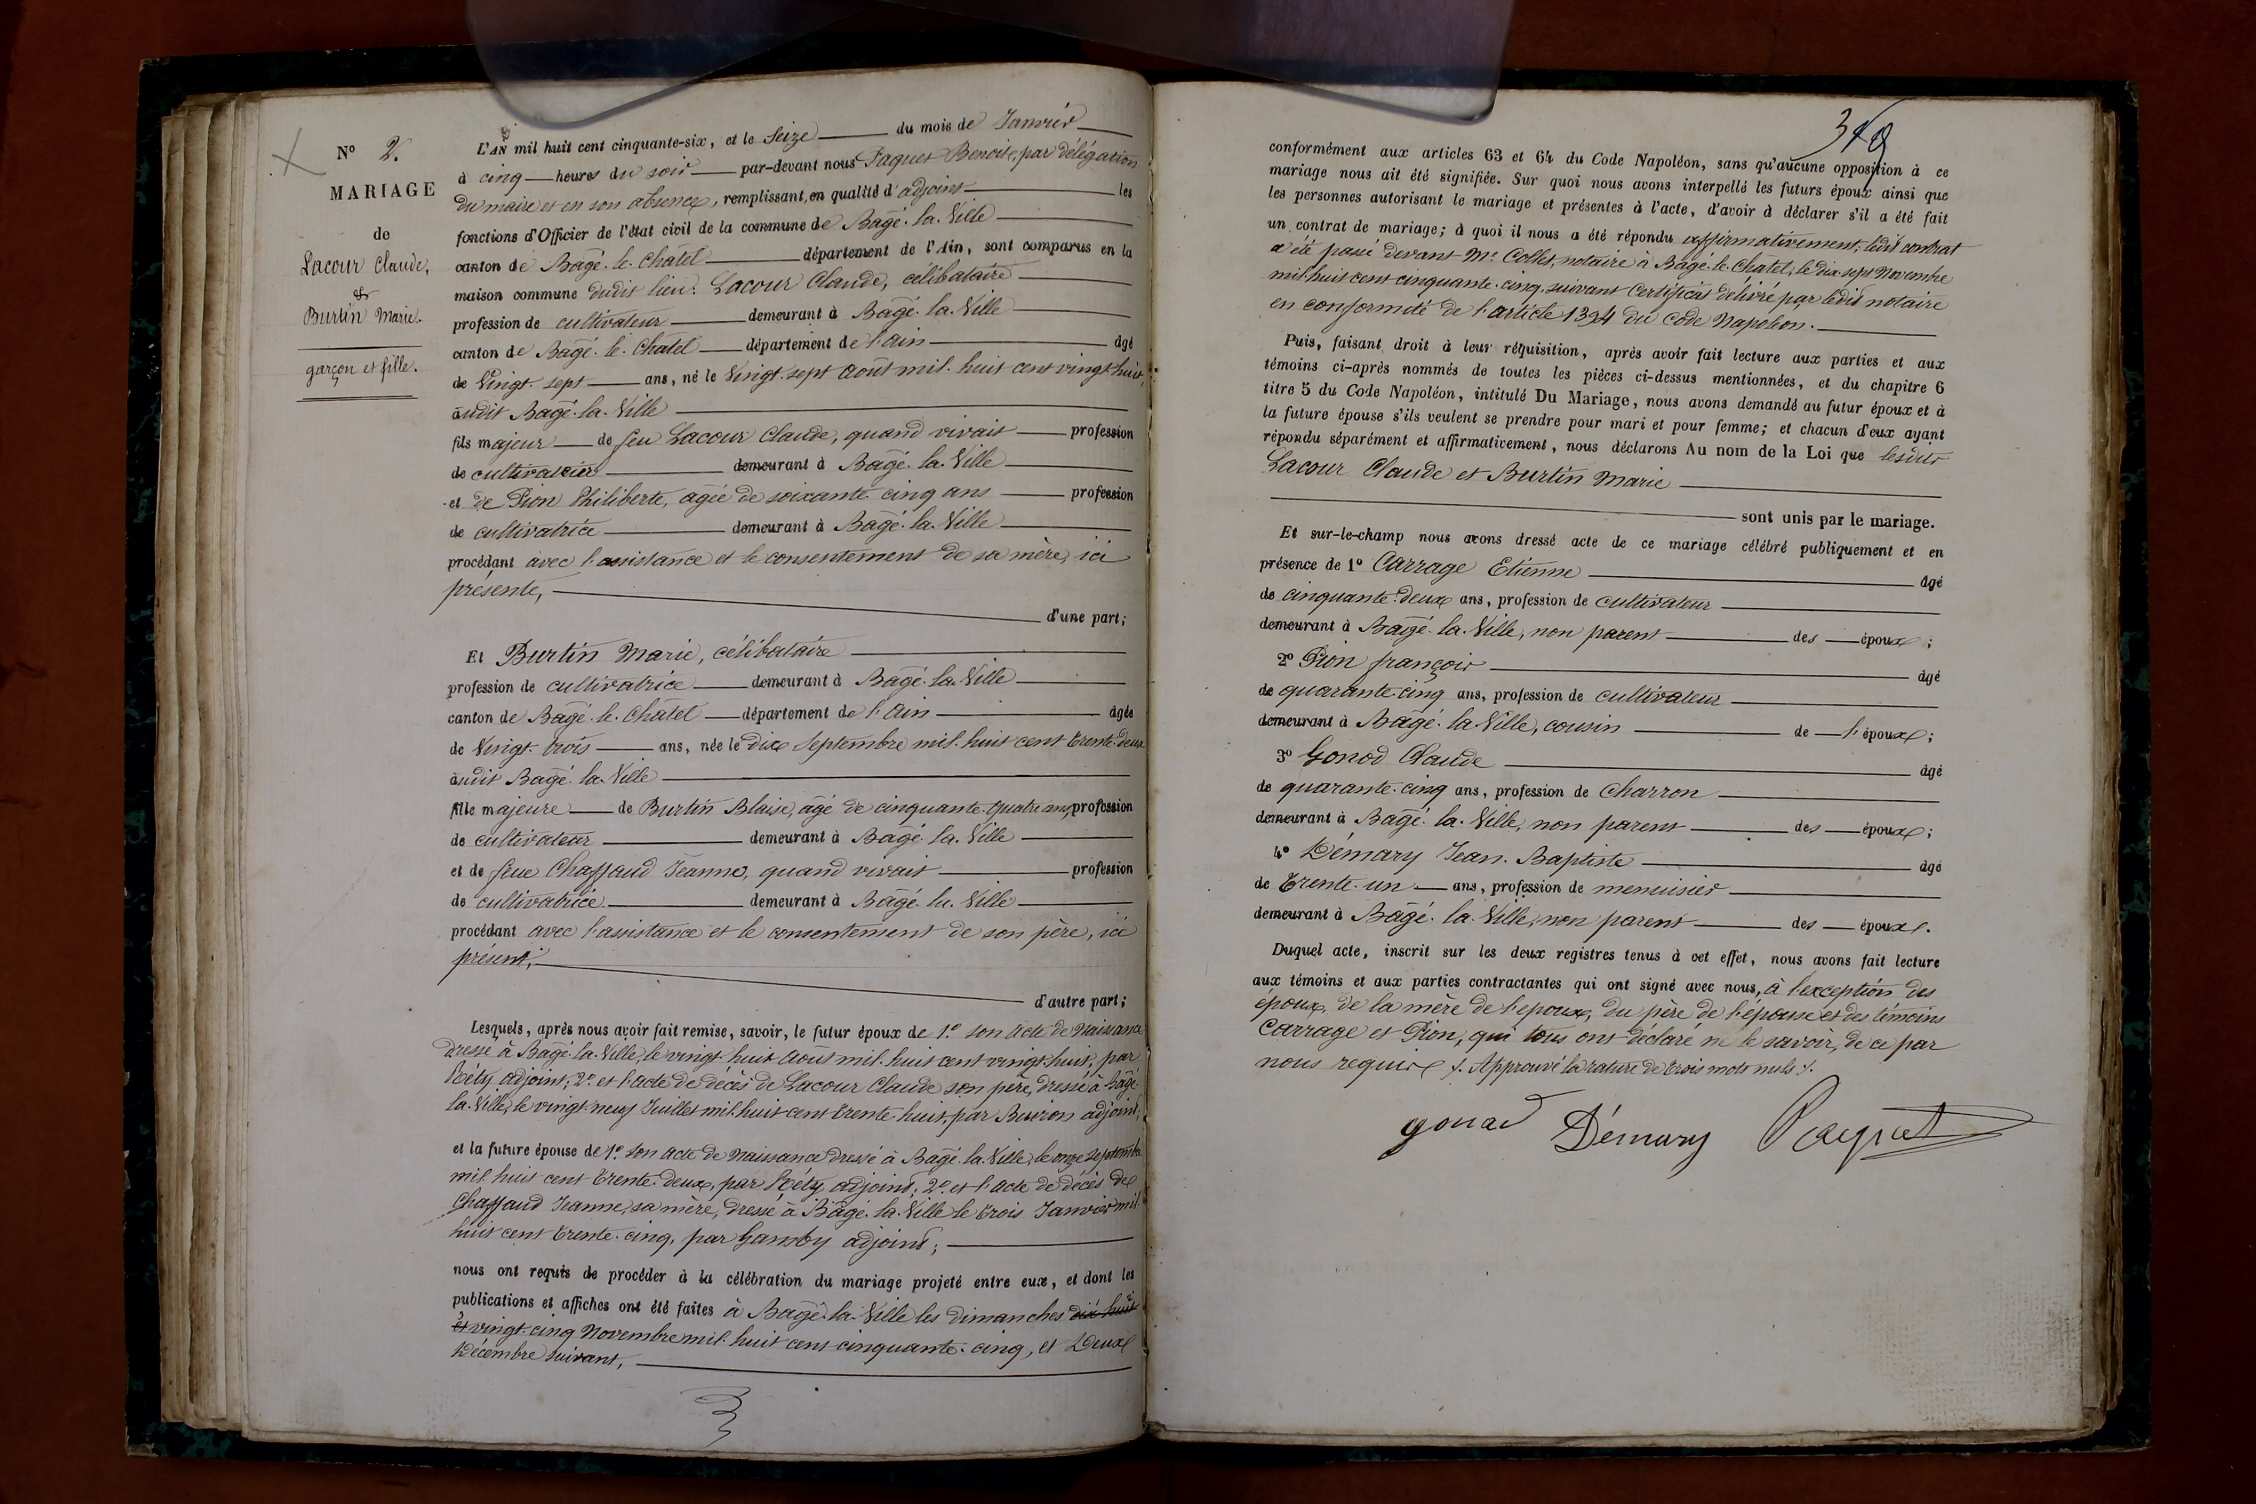 N° 2.
MARIAGE
de
Lacour Claude,
&
Burtin Marie.
garçon et fille.
L'AN mil huit cent cinquante-six, et le Seize du mois de Janvier
à cinq heures du soir par-devant nous Paquet Benoit, par délégation
du maire et en son absence, remplissant, en qualité d'adjoint les
fonctions d'Officier de l'état civil de la commune de Bâgé-la-Ville
canton de Bâgé-le-Chatel département de l'Ain, sont comparus en la
maison commune dudit lieu: Lacour Claude, célibataire
profession de cultivateur demeurant à Bâgé-la-Ville
canton de Bâgé-le-Chatel département de l'ain âgé
de Vingt-sept ans, né le Vingt-sept Août mil-huit cent vingt-huit,
audit Bâgé-la-Ville
fils majeur de feu Lacour Claude, quand vivait profession
de cultivateur demeurant à Bâgé-la-Ville
et de Pion Philiberte, agée de soixante-cinq ans profession
de cultivatrice demeurant à Bâgé-la-Ville
procédant avec l'assistance et le consentement de sa mère, ici
présente, d'une part;
Et Burtin Marie, célibataire
profession de cultivatrice demeurant à Bâgé-la-Ville
canton de Bâgé-le-Chatel département de l'Ain âgée
de Vingt-trois ans, née le Dix Septembre mil-huit cent trente-deux
audit Bâgé-la-Ville
fille majeure de Burtin Blaise, âgé de cinquante-quatre ans, profession
de cultivateur demeurant à Bâgé-la-Ville
et de feue Chaffaud Jeanne, quand vivait profession
de cultivatrice demeurant à Bâgé-la-Ville
procédant avec l'assistance et le consentement de son père, ici
présent; d'autre part;
Lesquels, après nous avoir fait remise, savoir, le futur époux de 1.° son acte de naissance
dressé à Bâgé-la-Ville, le vingt-huit Août mil-huit cent vingt-huit, par
Réty adjoint; 2.° et l'acte de décès de Lacour Claude son père, dressé à Bâgé-
la-Ville, le vingt-neuf Juillet mil-huit cent trente-huit, par Buiron adjoint,
et la future épouse de 1.° son acte de naissance dressé à Bâgé-la-Ville, le onze Septembre
mil-huit cent trente-deux, par Réty adjoint; 2.° et l'acte de décès de
Chaffaud Jeanne, sa mère, dressé à Bâgé-la-Ville le trois Janvier mil-
huit cent trente-cinq, par Gamby adjoint;
nous ont requis de procéder à la célébration du mariage projeté entre eux, et dont les
publications et affiches ont été faites à Bâgé-la-Ville les dimanches dix-huit
et vingt-cinq Novembre mil-huit cent cinquante-cinq, et Deux
Décembre suivant,
318
conformément aux articles 63 et 64 du Code Napoléon, sans qu'aucune opposition à ce
mariage nous ait été signifiée. Sur quoi nous avons interpellé les futurs époux ainsi que
les personnes autorisant le mariage et présentes à l'acte, d'avoir à déclarer s'il a été fait
un contrat de mariage; à quoi il nous a été répondu affirmativement; ledit contrat
a été passé devant M.e Collet, notaire à Bâgé-le-Chatel, le dix-sept Novembre
mil-huit cent cinquante-cinq, suivant Certificat délivré par ledit notaire
en conformité de l'article 1394 du Code Napoléon.
Puis, faisant droit à leur réquisition, après avoir fait lecture aux parties et aux
témoins ci-après nommés de toutes les pièces ci-dessus mentionnées, et du chapitre 6
titre 5 du Code Napoléon, intitulé Du Mariage, nous avons demandé au futur époux et à
la future épouse s'ils veulent se prendre pour mari et pour femme; et chacun d'eux ayant
répondu séparément et affirmativement, nous déclarons Au nom de la Loi que lesdits
Lacour Claude et Burtin Marie
sont unis par le mariage.
Et sur-le-champ nous avons dressé acte de ce mariage célébré publiquement et en
présence de 1° Carrage Etienne âgé
de cinquante-deux ans, profession de cultivateur
demeurant à Bâgé-la-Ville, non parent des époux;
2° Pion françois âgé
de quarante-cinq ans, profession de cultivateur
demeurant à Bâgé-la-Ville, cousin de l'époux;
3° Gonod Claude âgé
de quarante-cinq ans, profession de Charron
demeurant à Bâgé-la-Ville, non parent des époux;
4° Démary Jean-Baptiste âgé
de trente-un ans, profession de menuisier
demeurant à Bâgé-la-Ville, non parent des époux.
Duquel acte, inscrit sur les deux registres tenus à cet effet, nous avons fait lecture
aux témoins et aux parties contractantes qui ont signé avec nous, à l'exception des
époux, de la mère de l'époux, du père de l'épouse et des témoins
Carrage et Pion, qui tous ont déclaré ne le savoir, de ce par
nous requis /. Approuvé la rature de trois mots nuls /.
gonod Démary Paquet